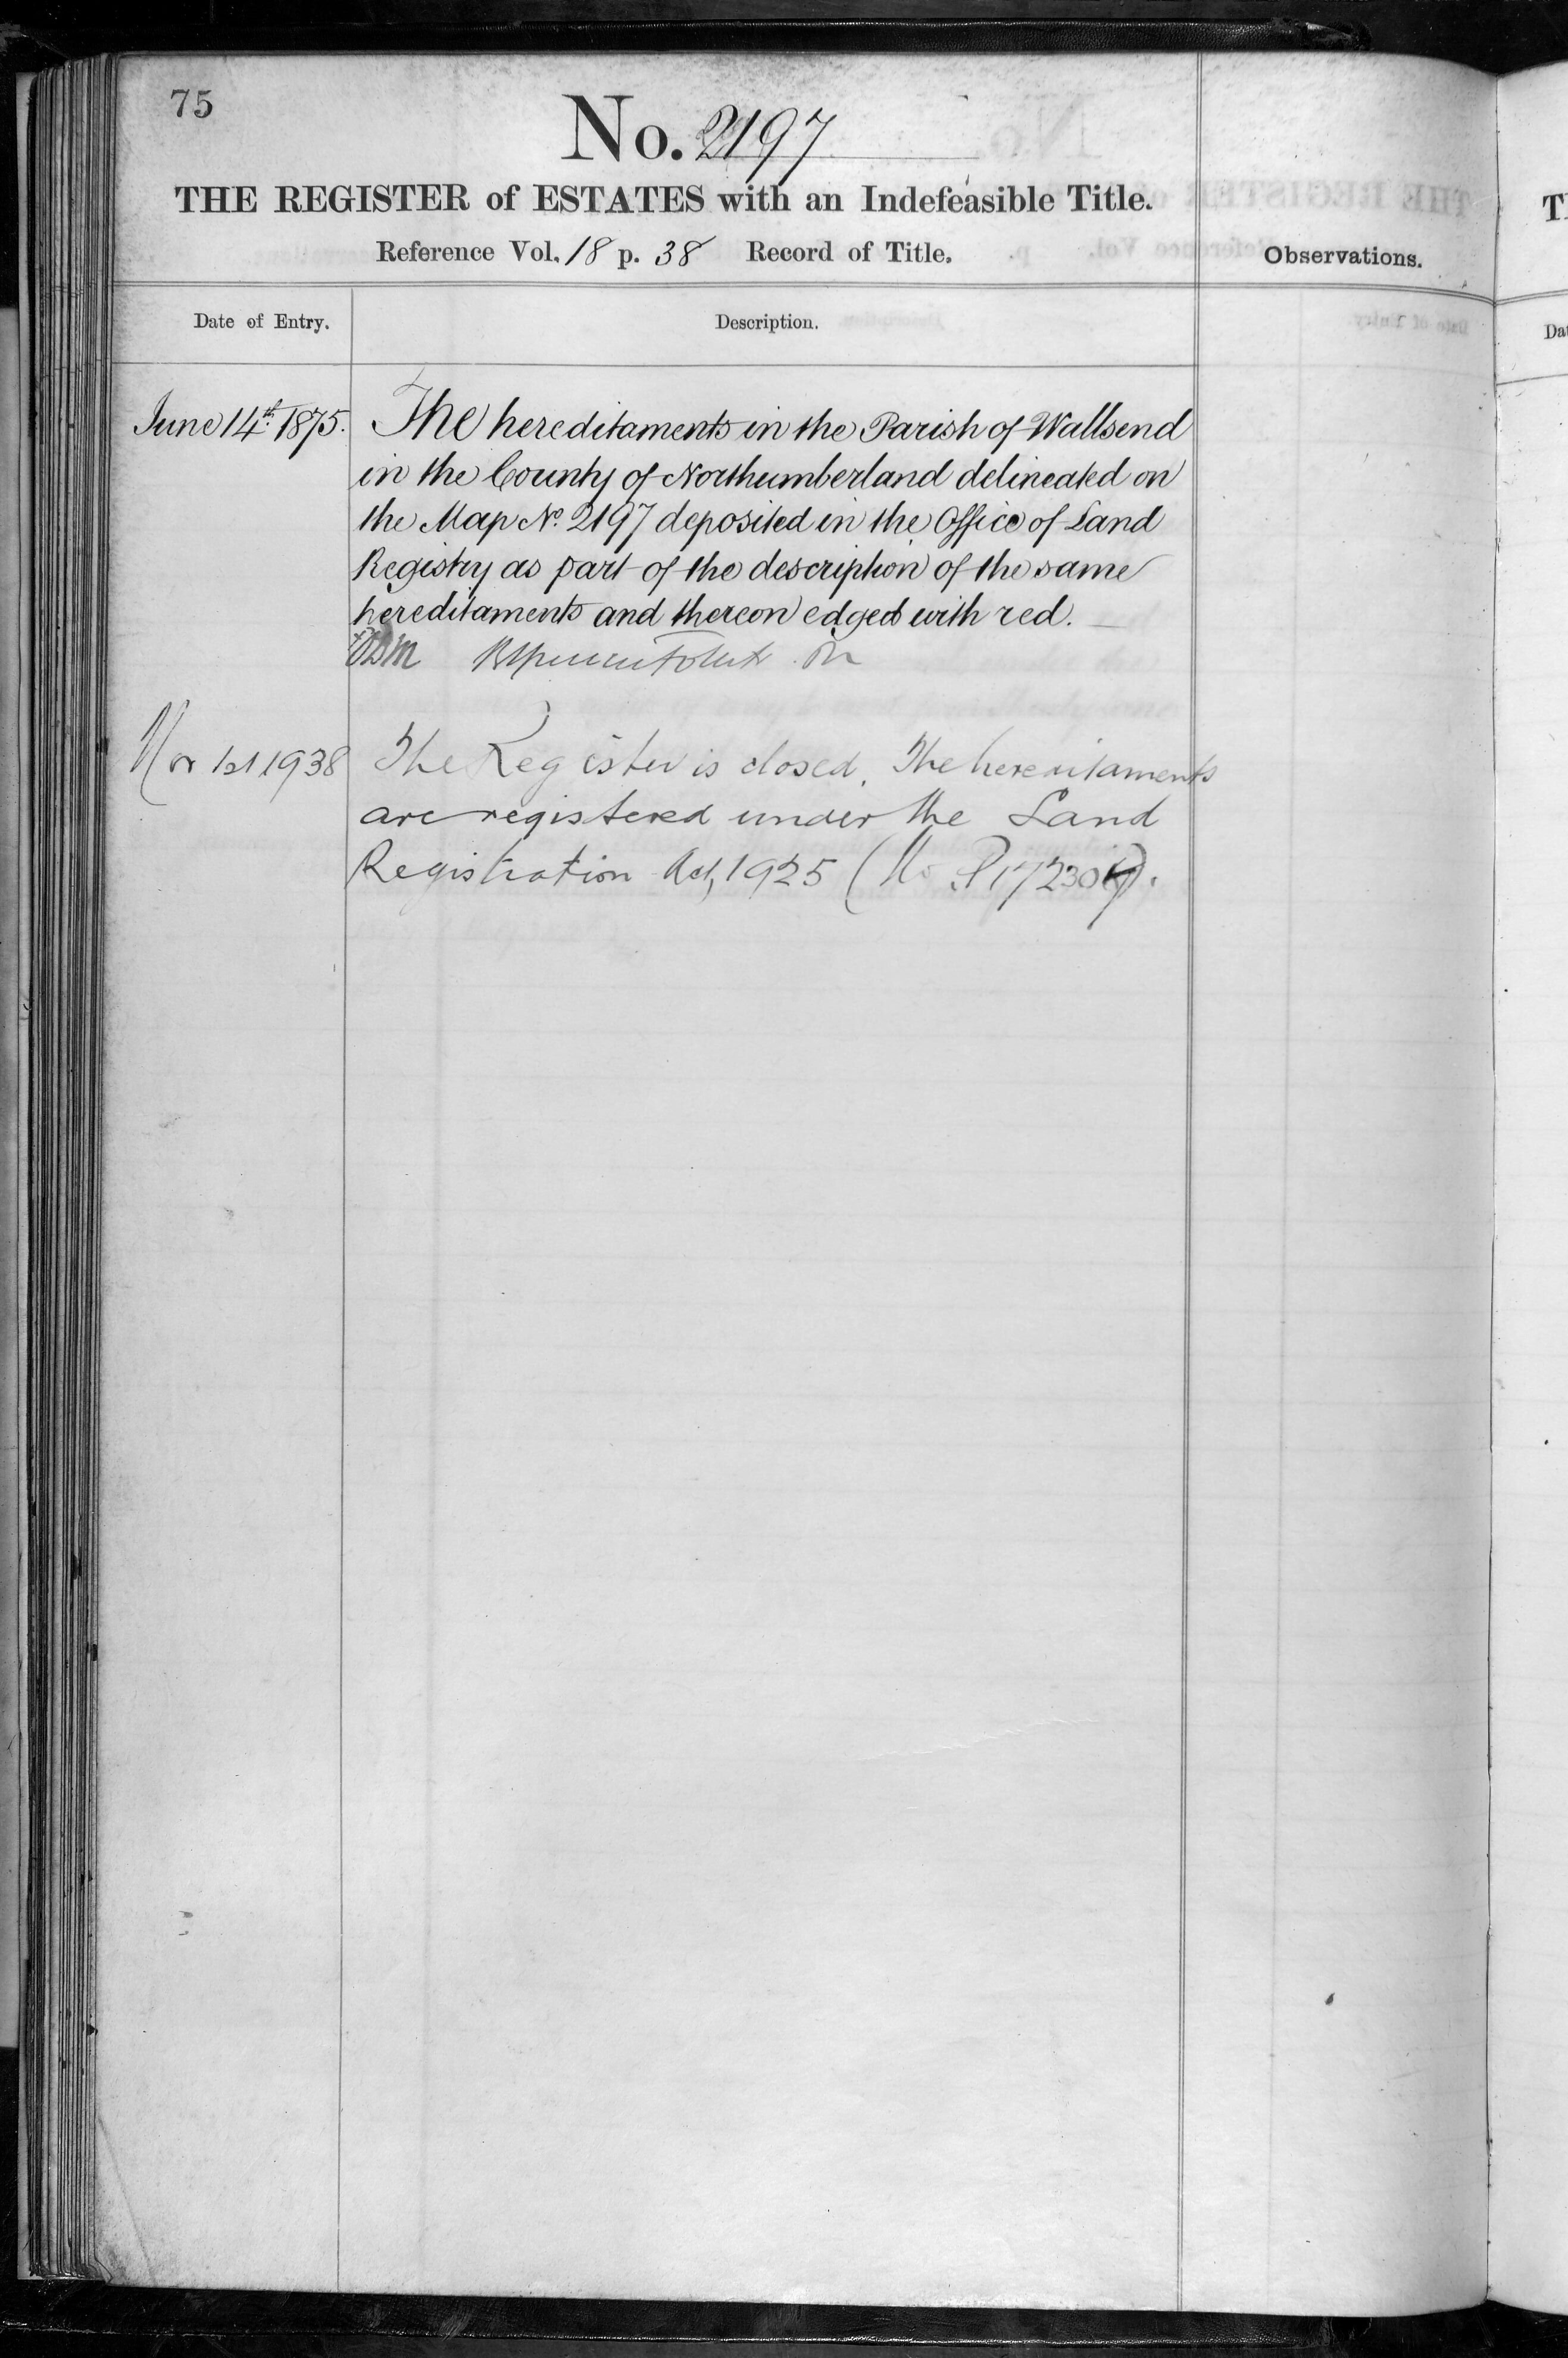 75
No. 2197
THE REGISTER of ESTATES with an Indefeasible Title.
Reference Vol. 18 p. 38 Record of Title.
Observations.
Date of Entry.
Description.
June 14th 1875. The hereditaments in the Parish of Wallsend
in the County of Northumberland delineated on
the Map No. 2197 deposited in the Office of Land
Registry as part of the description of the same
hereditaments and thereon edged with red.
Nov 1st 1938 The Register is closed. The hereditaments
are registered under the Land
Registration Act, 1925 (No